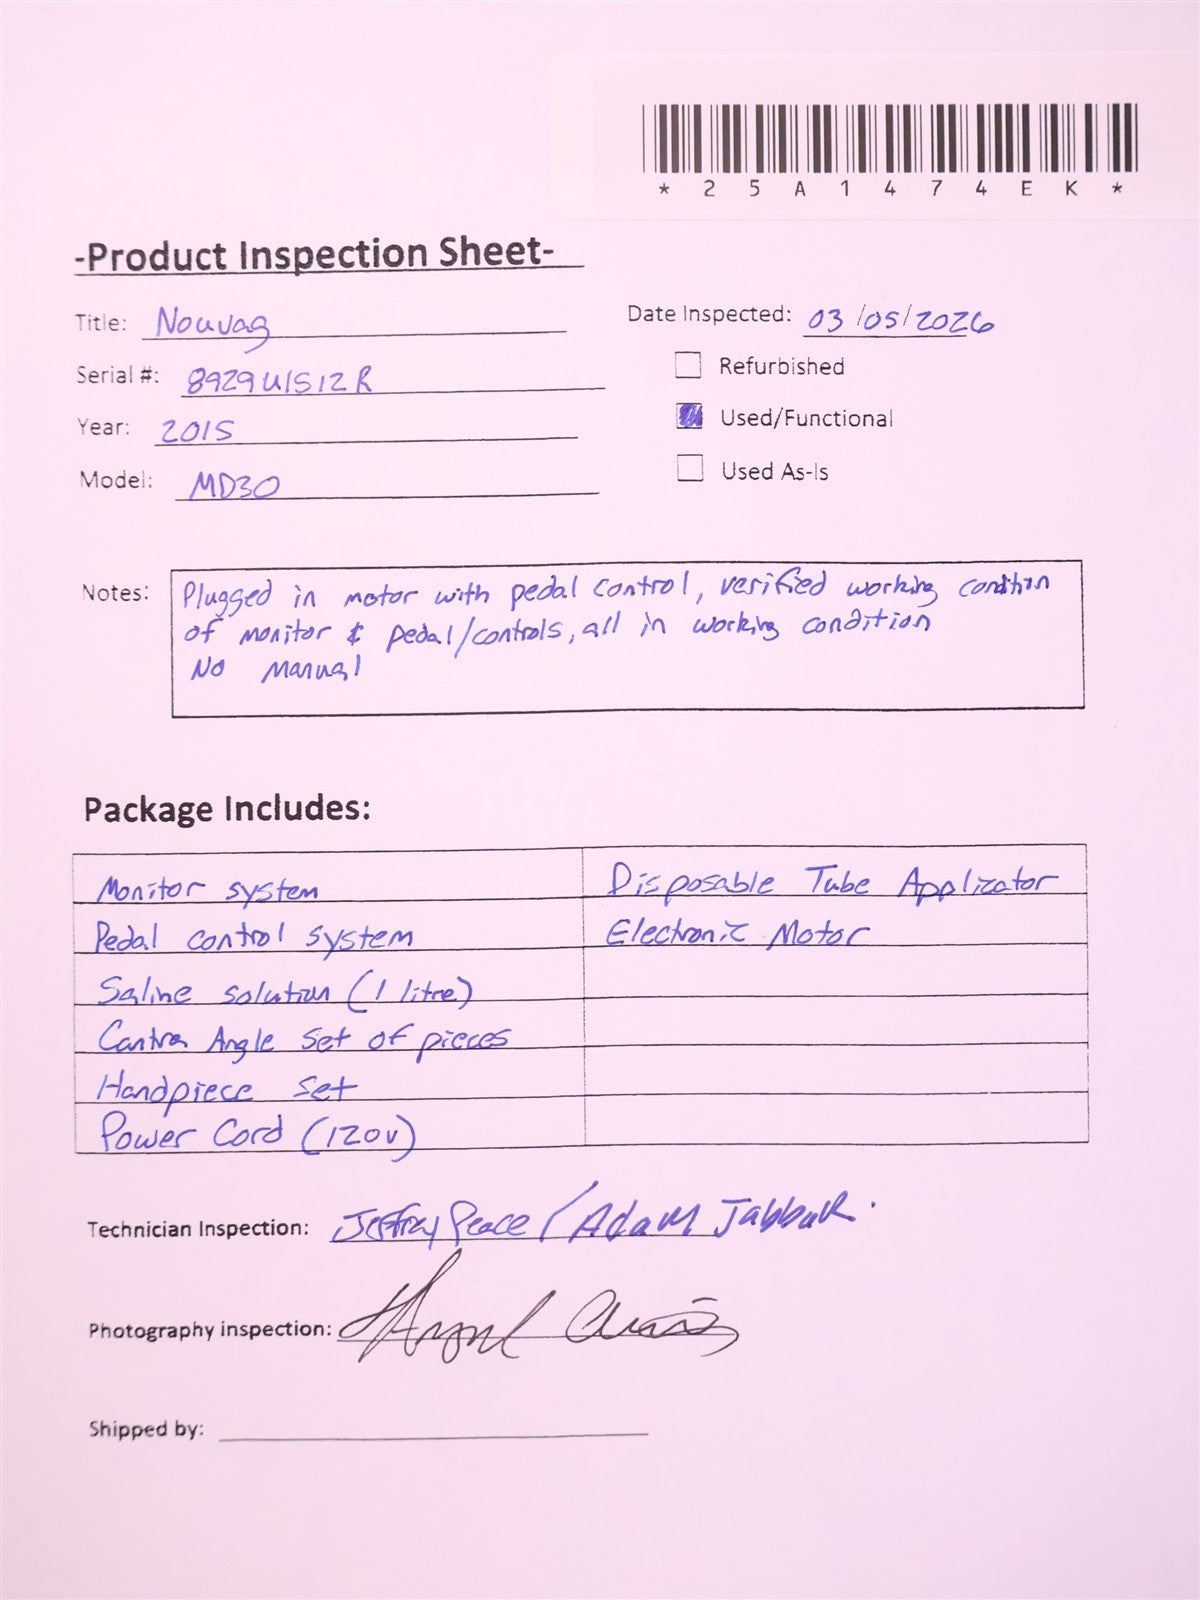 *25A1474EK*
-Product Inspection Sheet-
Title: Nouvag
Date Inspected: 03/05/2026
Serial #: 8929U1512R
Refurbished
Year: 2015
Used/Functional
Model: MD30
Used As-Is
Notes: Plugged in motor with pedal control, verified working condition
of monitor & pedal/controls, all in working condition
No Manual
Package Includes:
Monitor system
Disposable Tube Applicator
Pedal control system
Electronic Motor
Saline solution (1 litre)
Contra Angle set of pieces
Handpiece set
Power Cord (120v)
Technician Inspection: Jeffray Peace / Adam Jabbar.
Photography inspection:
Shipped by: